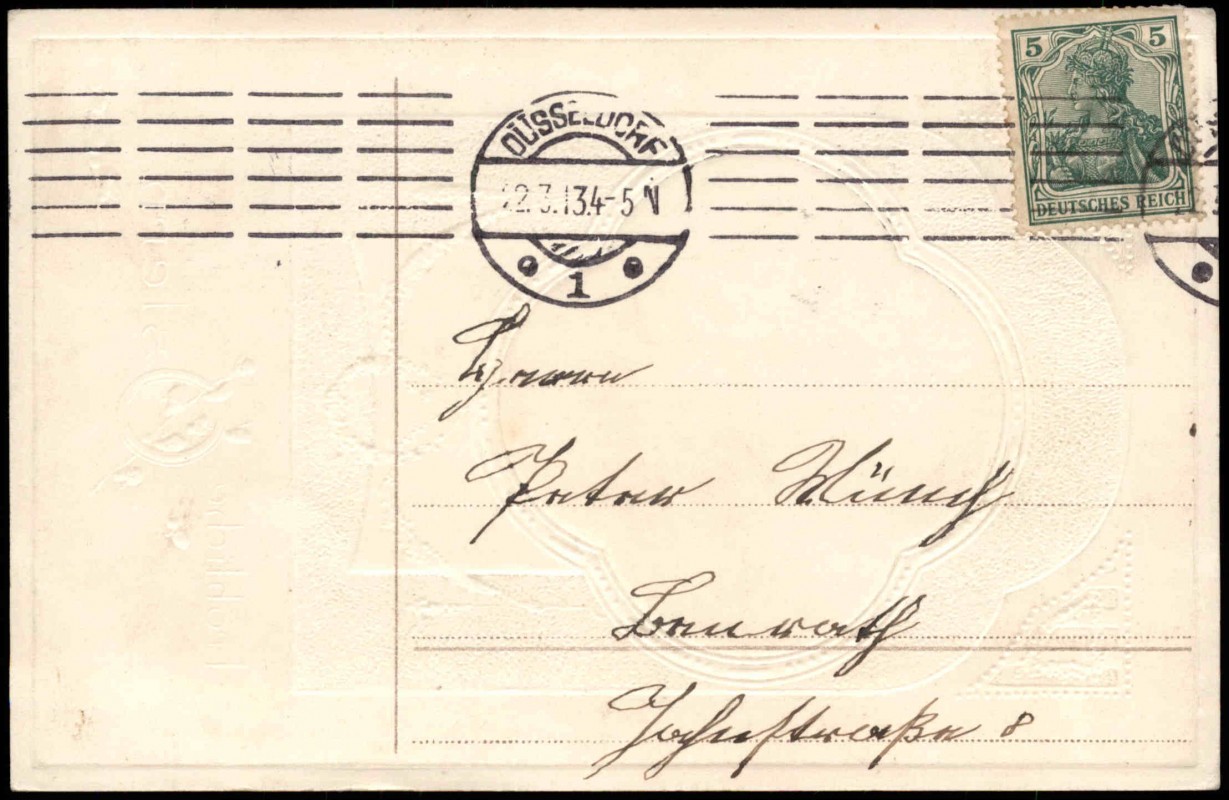 5 5
DEUTSCHES REICH
DÜSSELDORF
22.3.13.4-5 N
1
Herrn
Peter Münch
Benrath
Jahnstraße 8